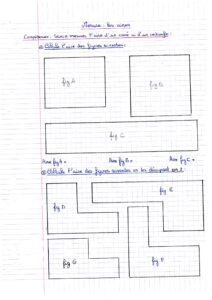 Mesures : Les aires
Compétence : Savoir mesurer l'aire d'un carré ou d'un rectangle.
① Calcule l'aire des figures suivantes :
fig A
fig B
fig C
Aire fig A =
Aire fig B =
Aire fig C =
② Calcule l'aire des figures suivantes en les découpant en 2 :
fig D
fig E
fig G
fig F